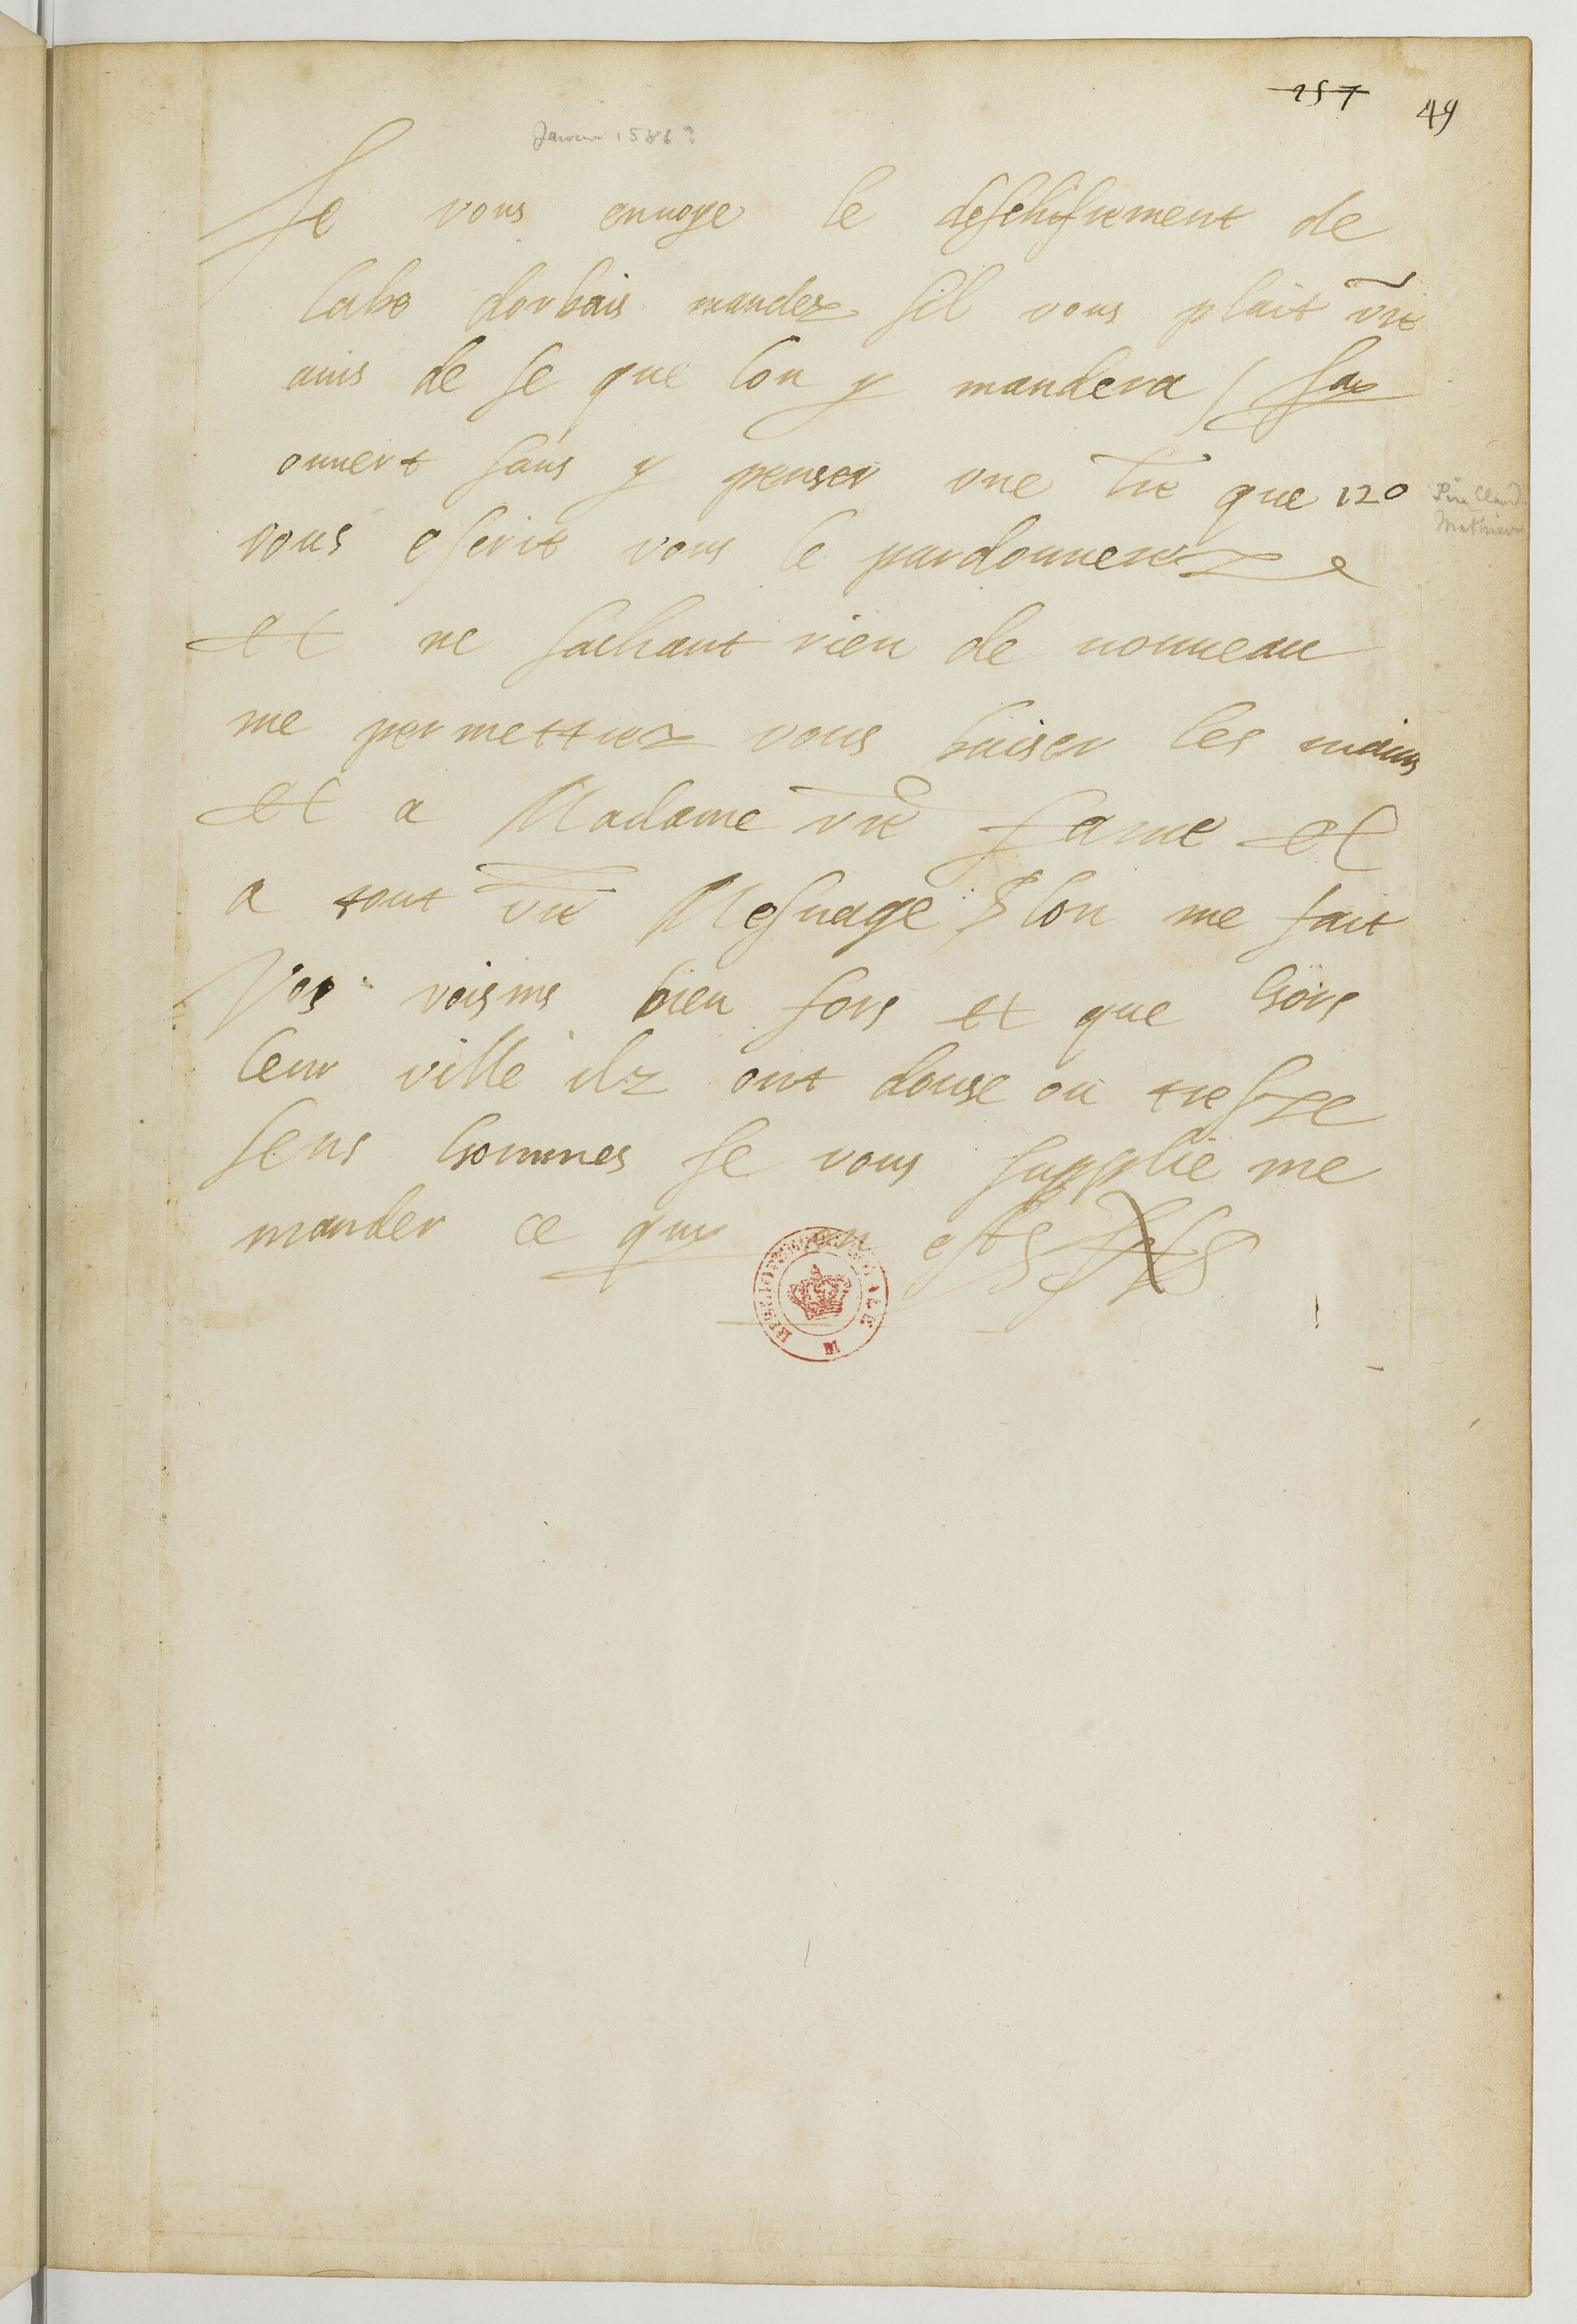 257 49
Janvier 1586?
Je vous enuoye le deschifrement de
labe dorbais mandez sil vous plait vre
auis de se que lon y mandera / jay
ouuert sans y penser une lre que 120
Père Claude
Mathieu
vous escrit vous le pardonnerez
et ne sachant rien de nouueau
me permettrez vous baiser les mains
et a Madame vre fame et
a tout vre Mesnage lon me fait
Vos voisins bien fors et que hors
leur ville ilz ont douse ou tresze
sens hommes je vous supplie me
mander ce quy en est